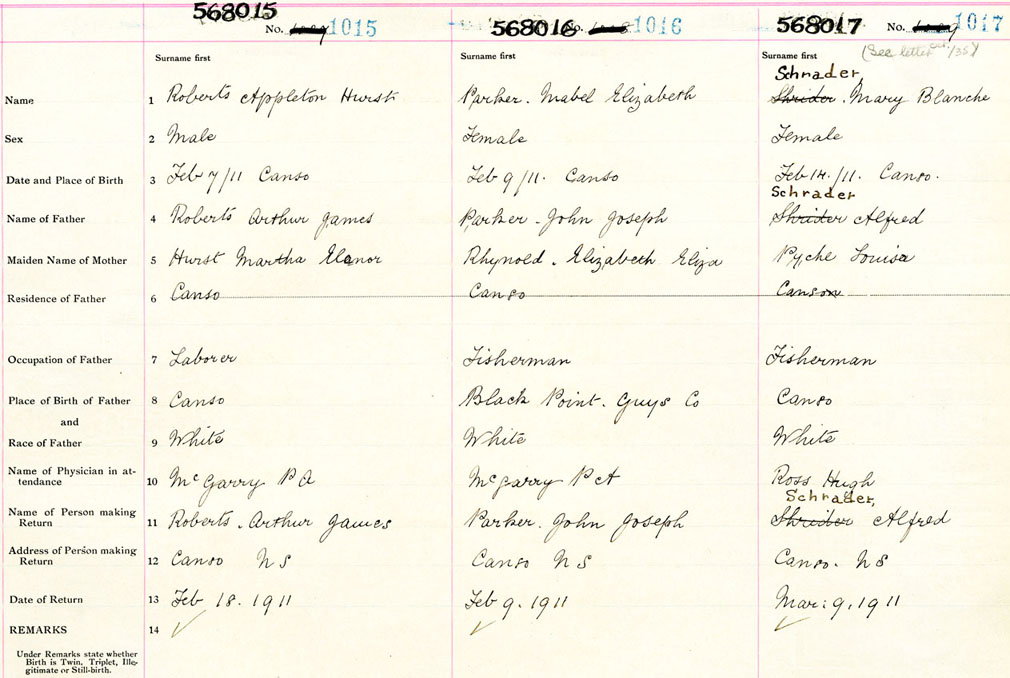 568015 No. 1015 568016 No. 1016 568017 No. 1017
(See letter /35)
Surname first Surname first Surname first
Schrader,
Name 1 Roberts Appleton Hurst Parker. Mabel Elizabeth Shrider. Mary Blanche
Sex 2 Male Female Female
Date and Place of Birth 3 Feb 7/11 Canso Feb 9/11. Canso Feb 14./11. Canso.
Schrader
Name of Father 4 Roberts Arthur James Parker. John Joseph Shrider Alfred
Maiden Name of Mother 5 Hurst Martha Elanor Rhynold. Elizabeth Eliza Pyche Louisa
Residence of Father 6 Canso Canso Canson
Occupation of Father 7 Laborer Fisherman Fisherman
Place of Birth of Father 8 Canso Black Point. Guys Co Canso
and
Race of Father 9 White White White
Name of Physician in at-
tendance 10 McGarry P A McGarry P A Ross Hugh
Schrader,
Name of Person making
Return 11 Roberts. Arthur James Parker. John Joseph Shrider Alfred
Address of Person making
Return 12 Canso N S Canso N S Canso. N S
Date of Return 13 Feb 18. 1911 Feb 9. 1911 Mar: 9, 1911
REMARKS 14
Under Remarks state whether
Birth is Twin, Triplet, Ille-
gitimate or Still-birth.